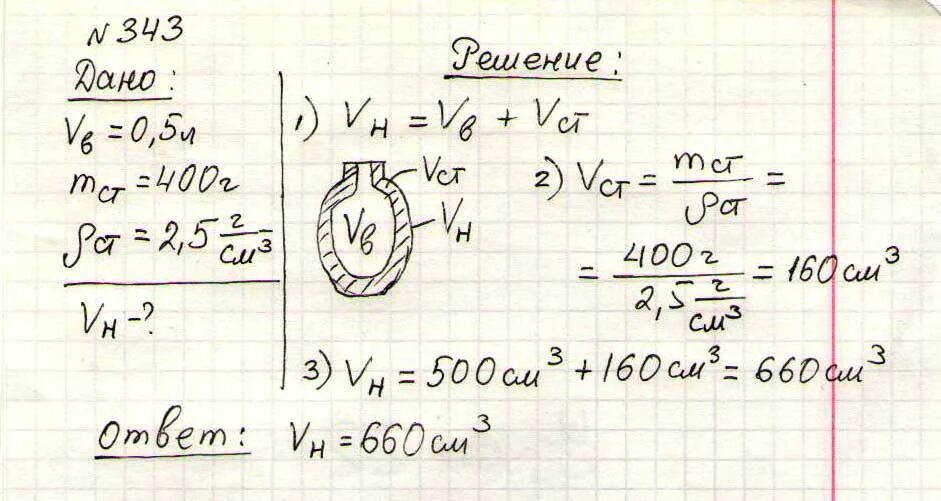 N 343
Дано:
Vв = 0,5л
mст = 400г
ρст = 2,5 г/см³
Vн - ?
Решение:
1) Vн = Vв + Vст
Vст
Vв
Vн
2) Vст = mст/ρст =
= 400г/2,5 г/см³ = 160 см³
3) Vн = 500 см³ + 160 см³ = 660 см³
Ответ: Vн = 660 см³